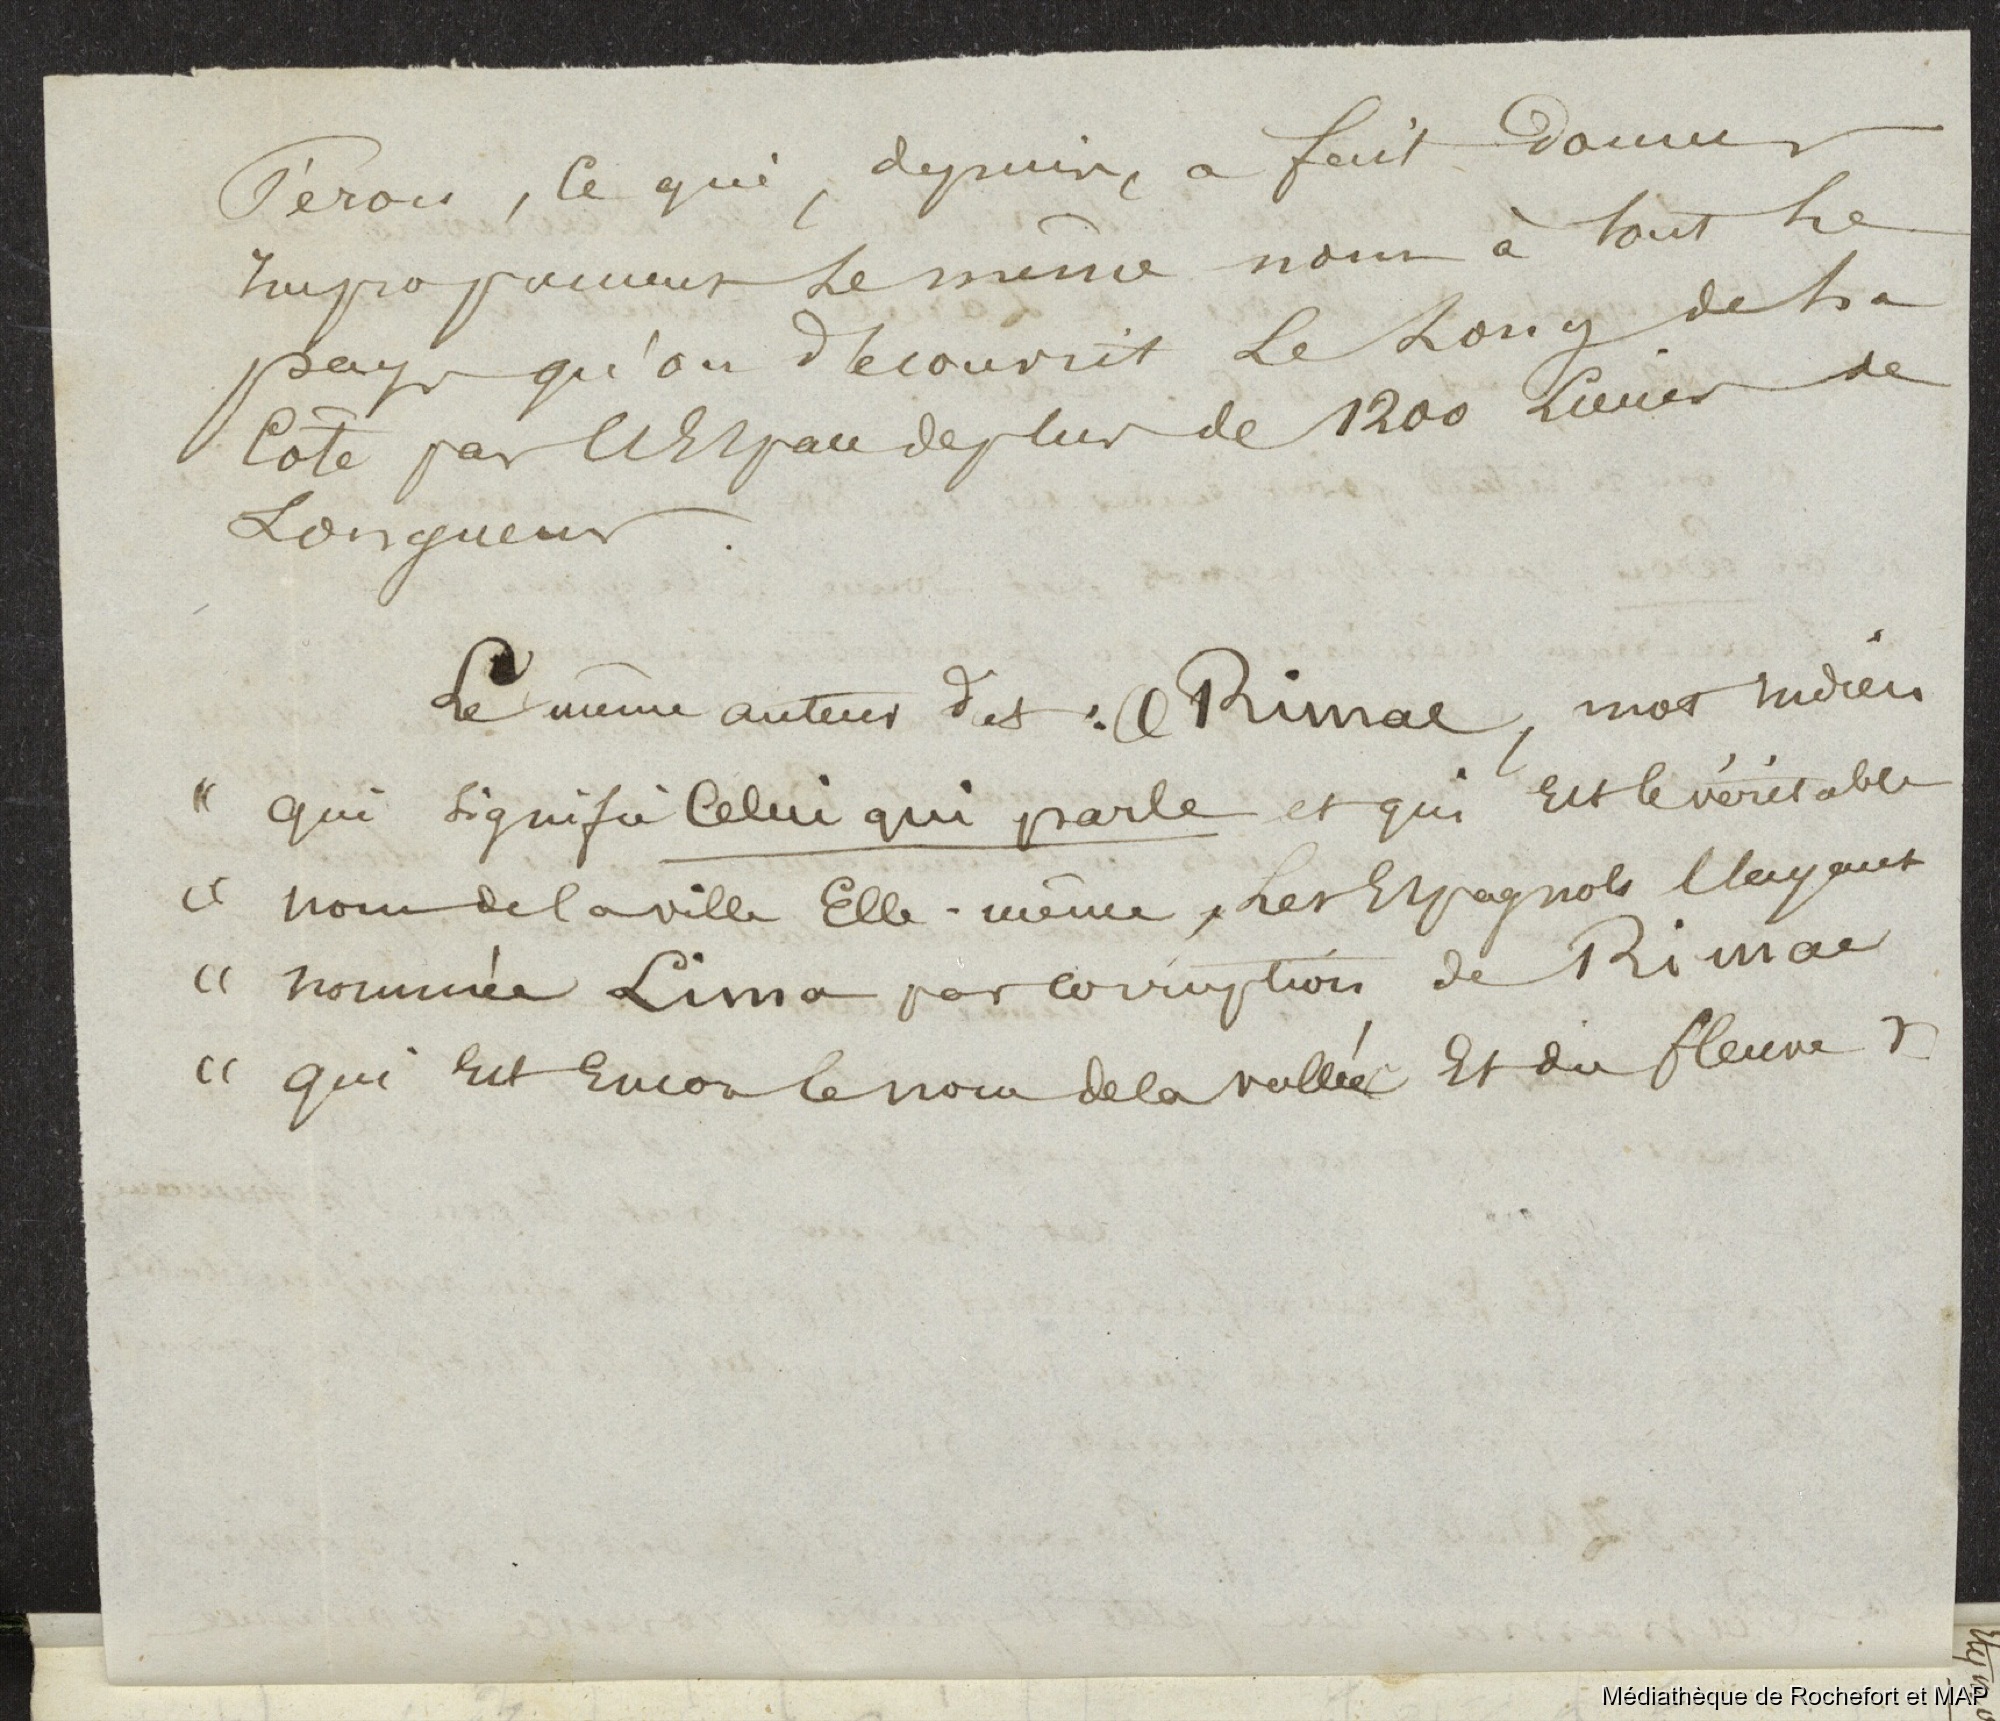 Pérou, ce qui, depuis, a fait donner
improprement le même nom à tout le
pays qu'on découvrit le long de la
Côte par l'Espace de plus de 1200 lieues de
Longueur.
Le même auteur dit : « Rimac, mot indien
« qui signifie Celui qui parle et qui Est le véritable
« nom de la ville Elle-même, les Espagnols l'ayant
« nommée Lima par corruption de Rimac
« qui Est Encor le nom de la vallée Et du fleuve »
Médiathèque de Rochefort et MAP